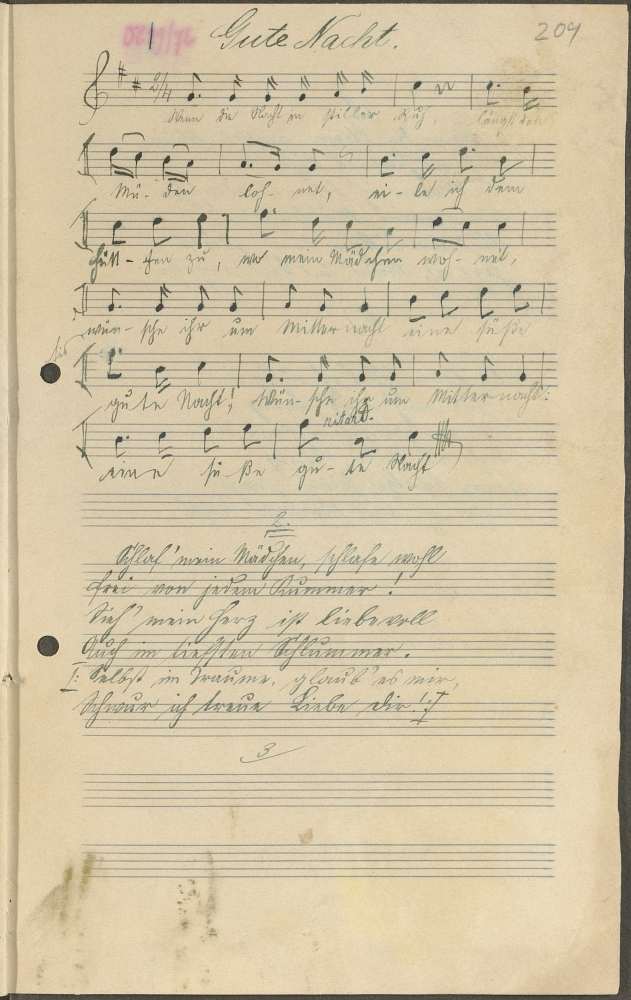 Gute Nacht. 209
2/4
Wenn die Nacht in stiller Ruh, längst den
Mü- den loh- net, ei- le ich dem
Hütt- chen zu, wo mein Mädchen woh- net,
wün- sche ihr um Mitternacht eine süße
bis
gute Nacht! wün- sche ihr um Mitternacht:
ritard.
eine sü- ße gu- te Nacht
2.
Schlaf' mein Mädchen, schlafe wohl
frei von jedem Kummer!
Sieh' mein Herz ist liebevoll
Auch im tiefsten Schlummer.
|: Selbst im Traume, glaub' es mir,
Schwur ich treue Liebe dir! :|
3